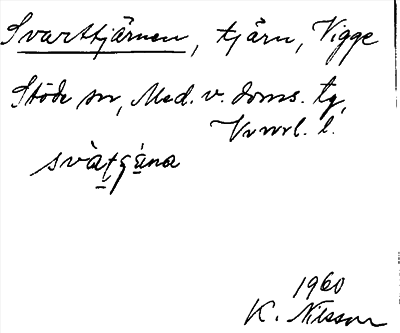 Svarttjärnen, tjärn, Vigge
Stöde sn, Med. v. doms. tg,
Vnorl. l.
svàtɟäna
1960
K. Nilsson